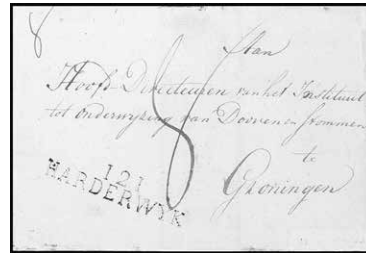 8
Aan
Hoofd-Directeuren van het Instituut
tot onderwijzing van Dooven en stommen
te
Groningen
8
121
HARDERWYK